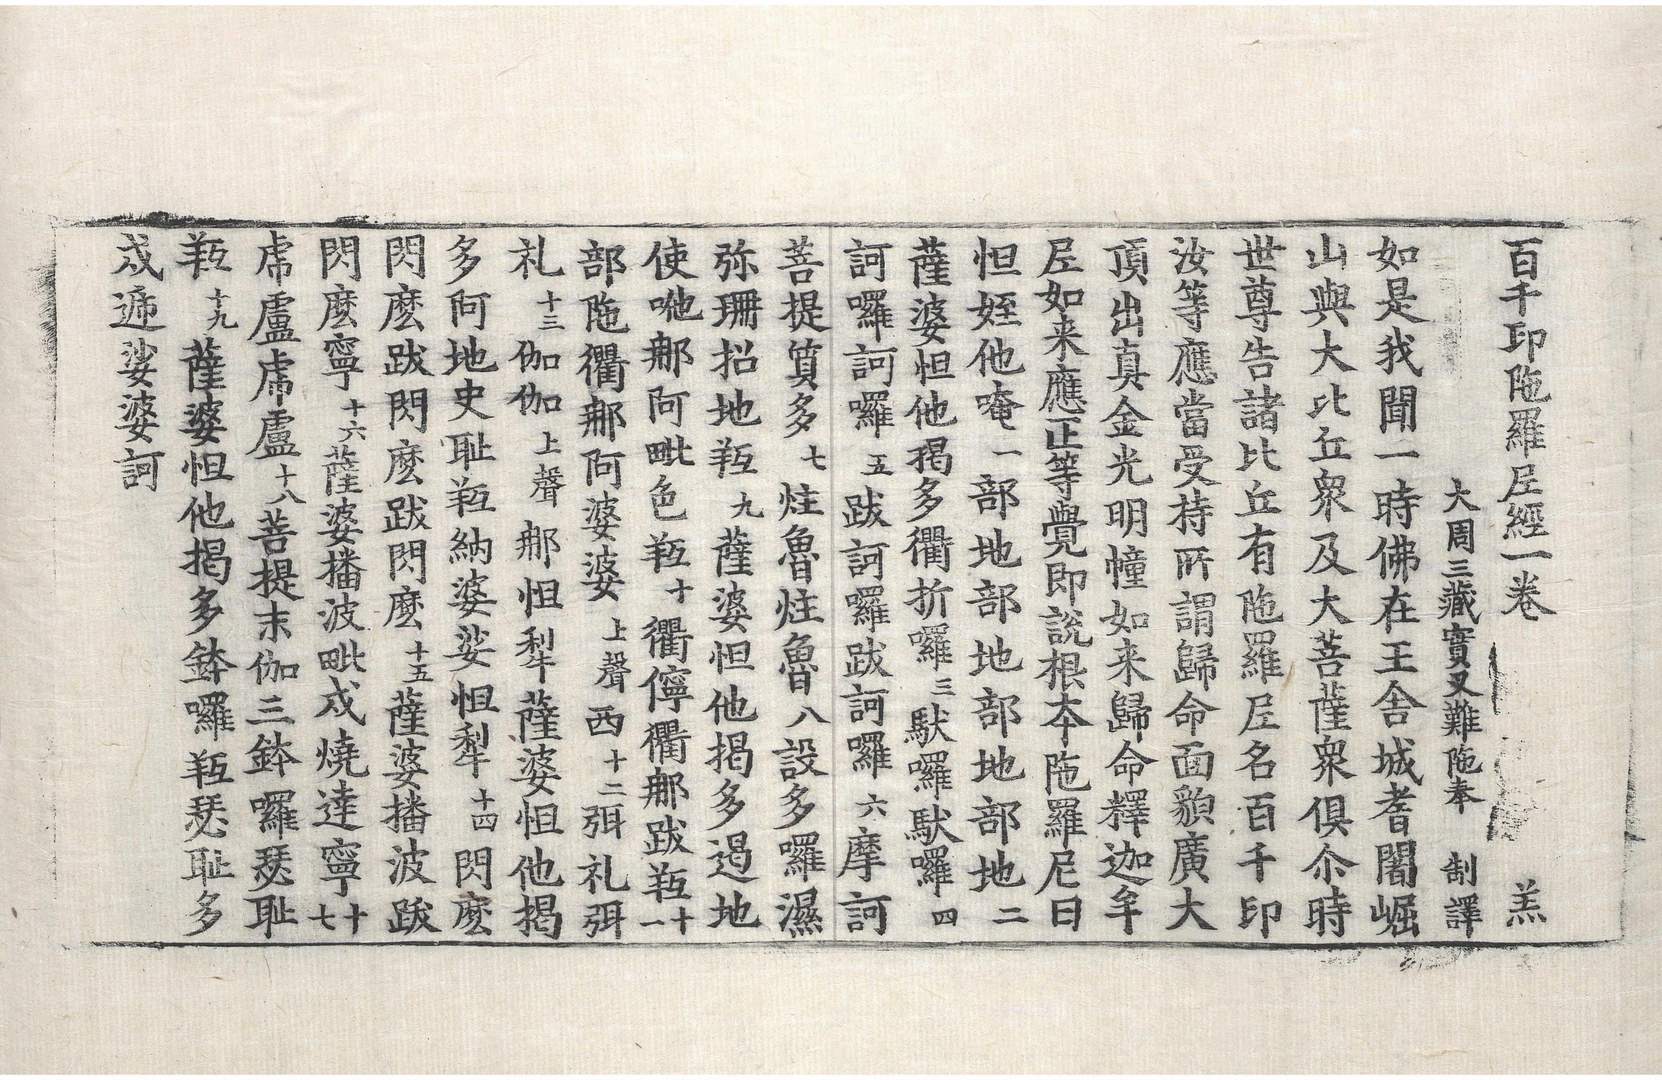 百千印陁羅尼經一卷 羔
大周三藏實叉難陁奉 制譯
如是我聞一時佛在王舍城耆闍崛
山與大比丘衆及大菩薩衆俱尒時
世尊告諸比丘有陁羅尼名百千印
汝等應當受持所謂歸命面䫉廣大
頂出真金光明幢如来歸命釋迦牟
尼如来應正等覺即說根本陁羅尼曰
怛姪他唵一部地部地部地部地二
薩婆怛他揭多衢折囉三馱囉馱囉四
訶囉訶囉五跋訶囉跋訶囉六摩訶
菩提質多七炷魯炷魯八設多囉濕
弥珊招地䍴九薩婆怛他揭多遏地
使吔那阿毗色䍴十衢儜衢那跋䍴十一
部陁衢那阿婆婆上聲西十二弭礼弭
礼十三伽伽上聲那怛犁薩婆怛他揭
多阿地史耻䍴納婆娑怛犁十四閃麽
閃麽跋閃麽跋閃麽十五薩婆播波跋
閃麽寧十六薩婆播波毗戍燒達寧十七
虎盧虎盧十八菩提末伽三鉢囉瑟耻
䍴十九薩婆怛他揭多鉢囉䍴瑟耻多
戍遞娑婆訶